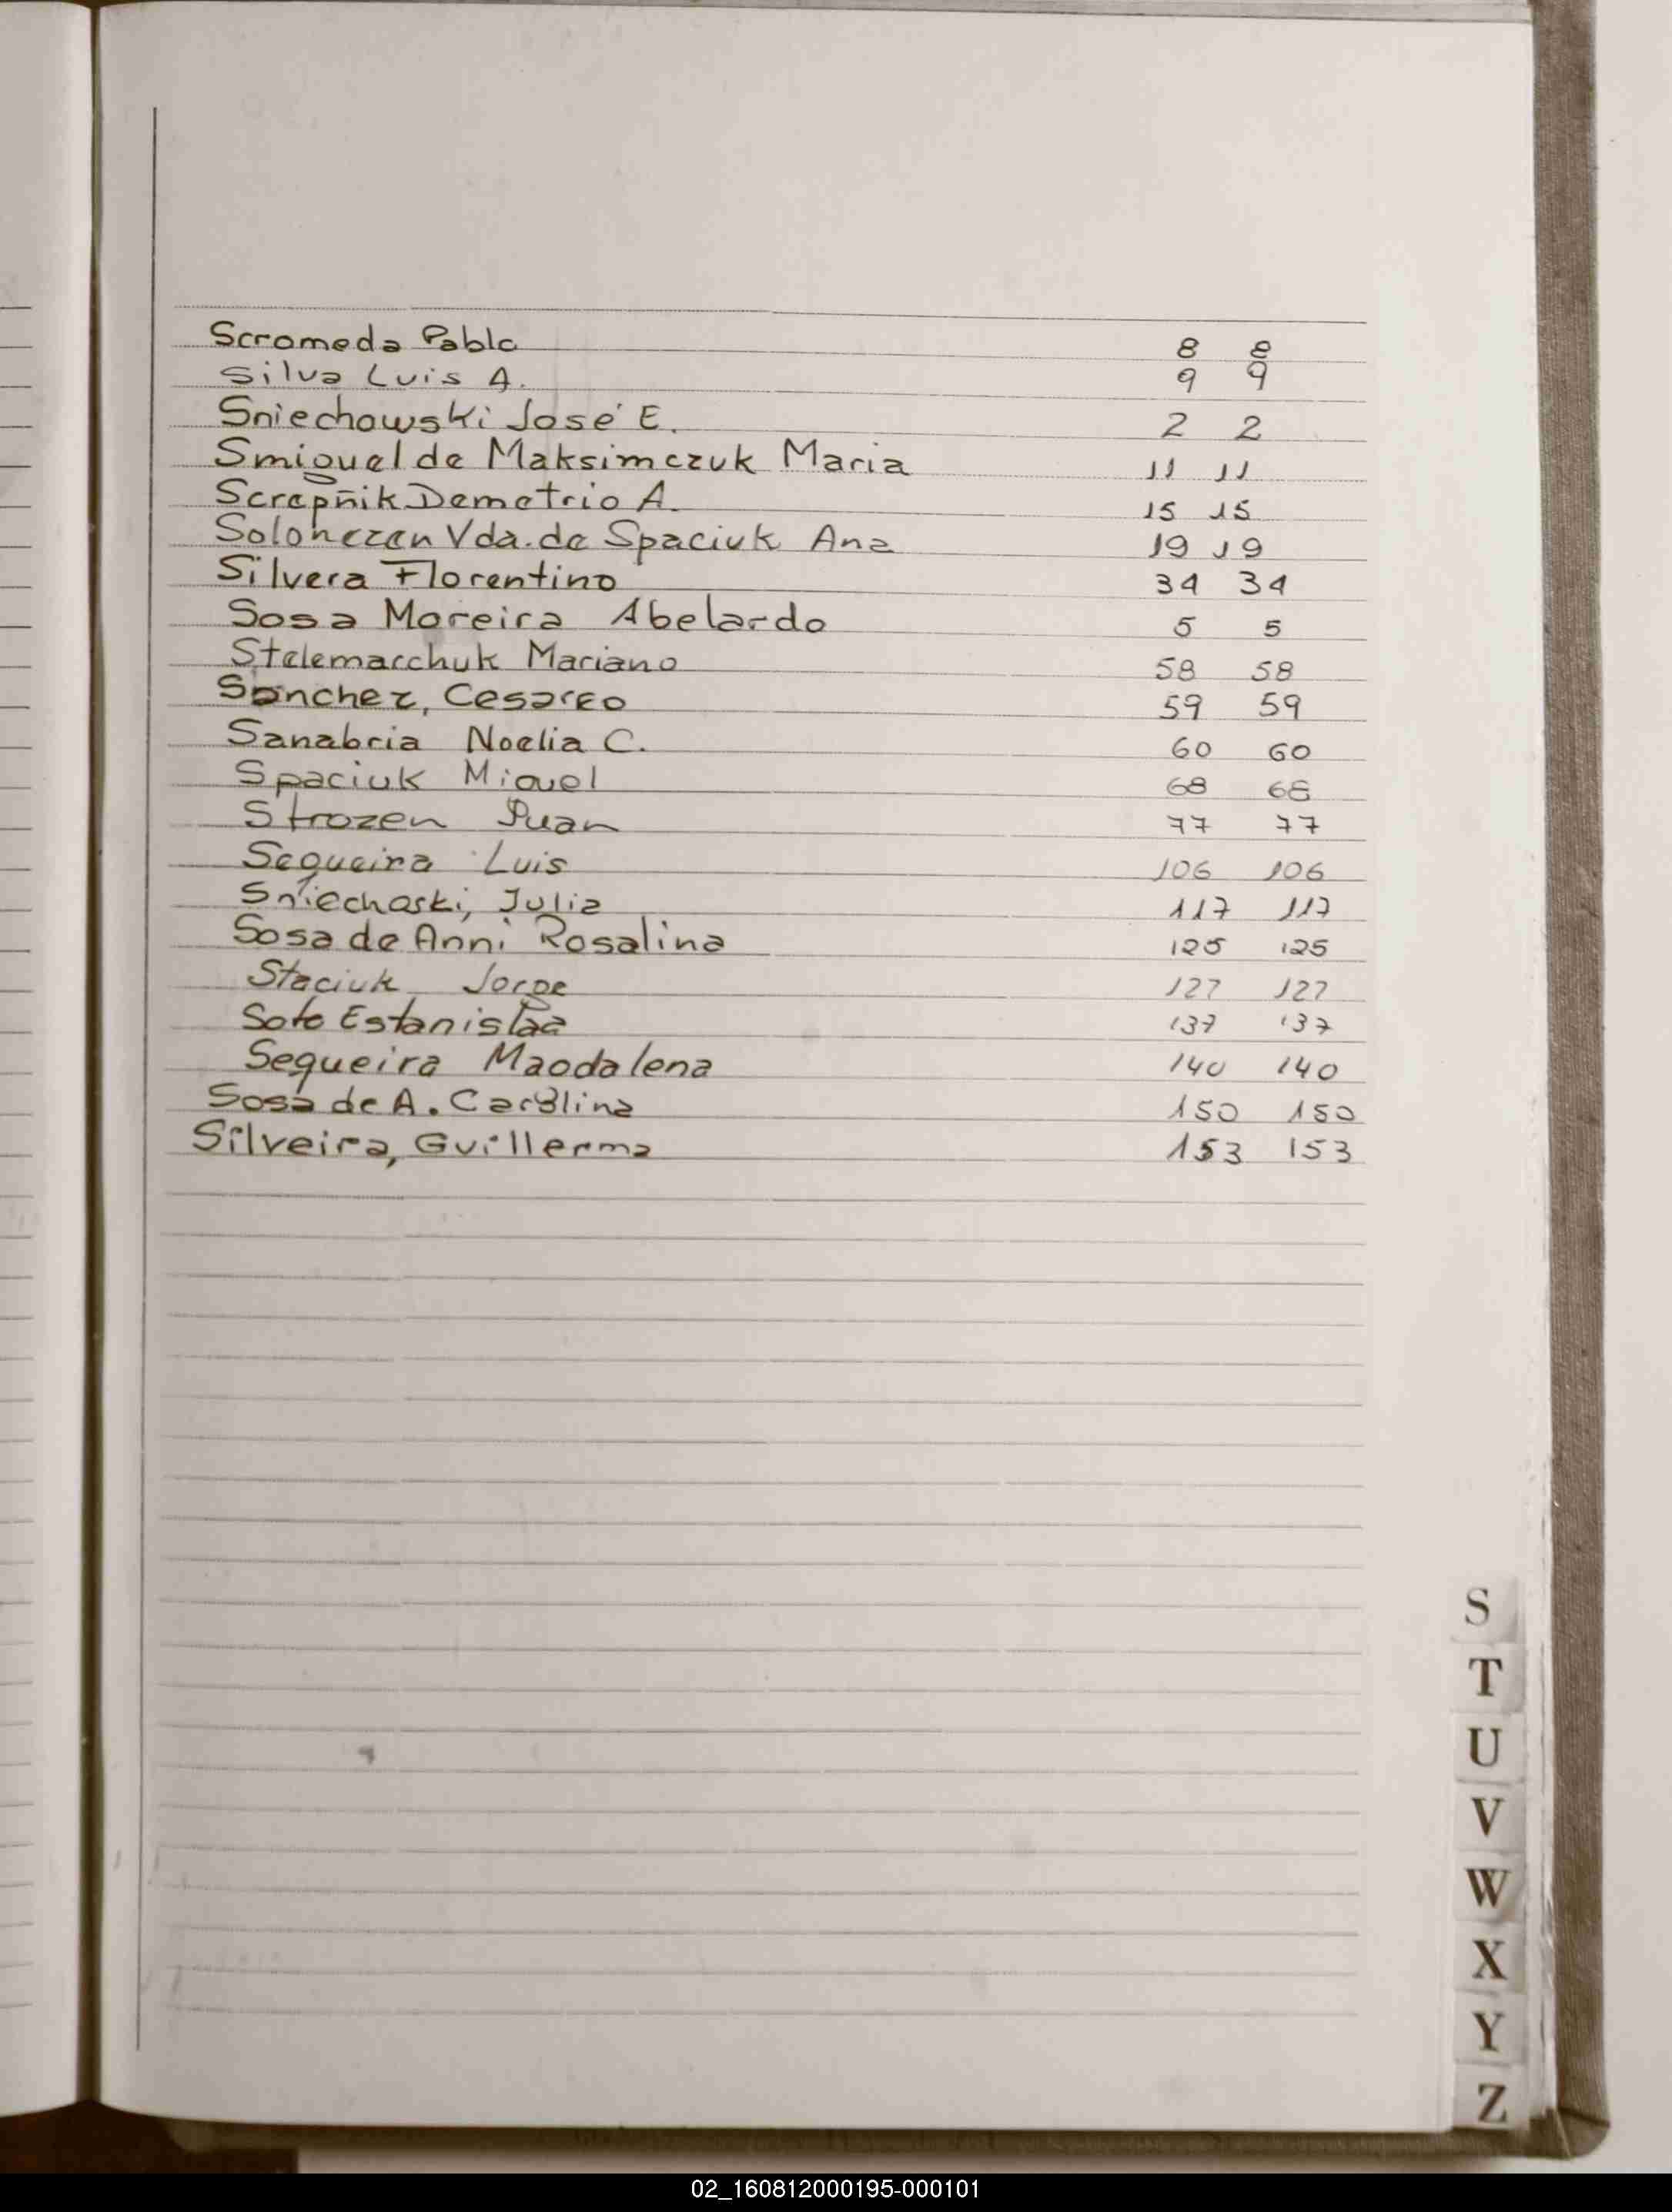 Scromeda Pablo 8 8
Silva Luis A. 9 9
Sniechowski José E. 2 2
Smiguel de Maksimczuk Maria 11 11
Screpñik Demetrio A. 15 15
Solonezen Vda. de Spaciuk Ana 19 19
Silvera Florentino 34 34
Sosa Moreira Abelardo 5 5
Stelemacchuk Mariano 58 58
Sanchez, Cesareo 59 59
Sanabria Noelia C. 60 60
Spaciuk Miguel 68 68
Strozen Juan 77 77
Sequeira Luis 106 106
Sniechoski, Julia 117 117
Sosa de Anni Rosalina 125 125
Staciuk Jorge 127 127
Soto Estanislaa 137 137
Sequeira Magdalena 140 140
Sosa de A. Carolina 150 150
Silveira, Guillerma 153 153
S
T
U
V
W
X
Y
Z
02_160812000195-000101